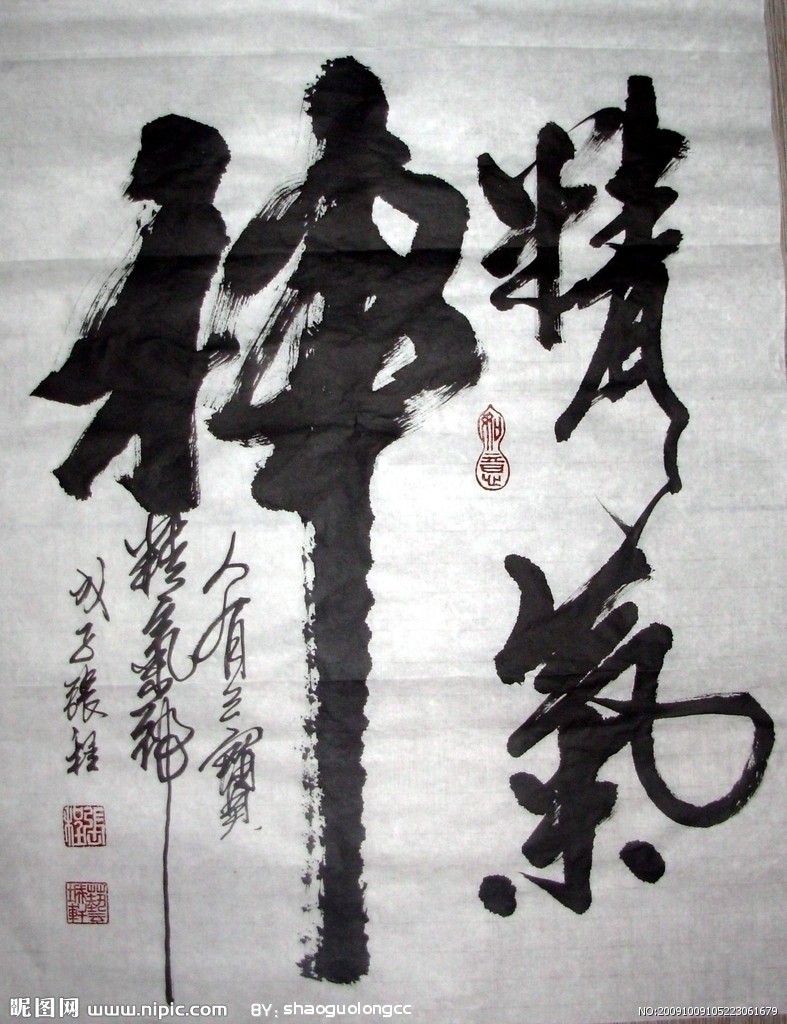 精氣
神
如意
人有三寶
精氣神
戊子張程
張程
昵图网 www.nipic.com BY: shaoguolongcc
NO:20091009105223061679